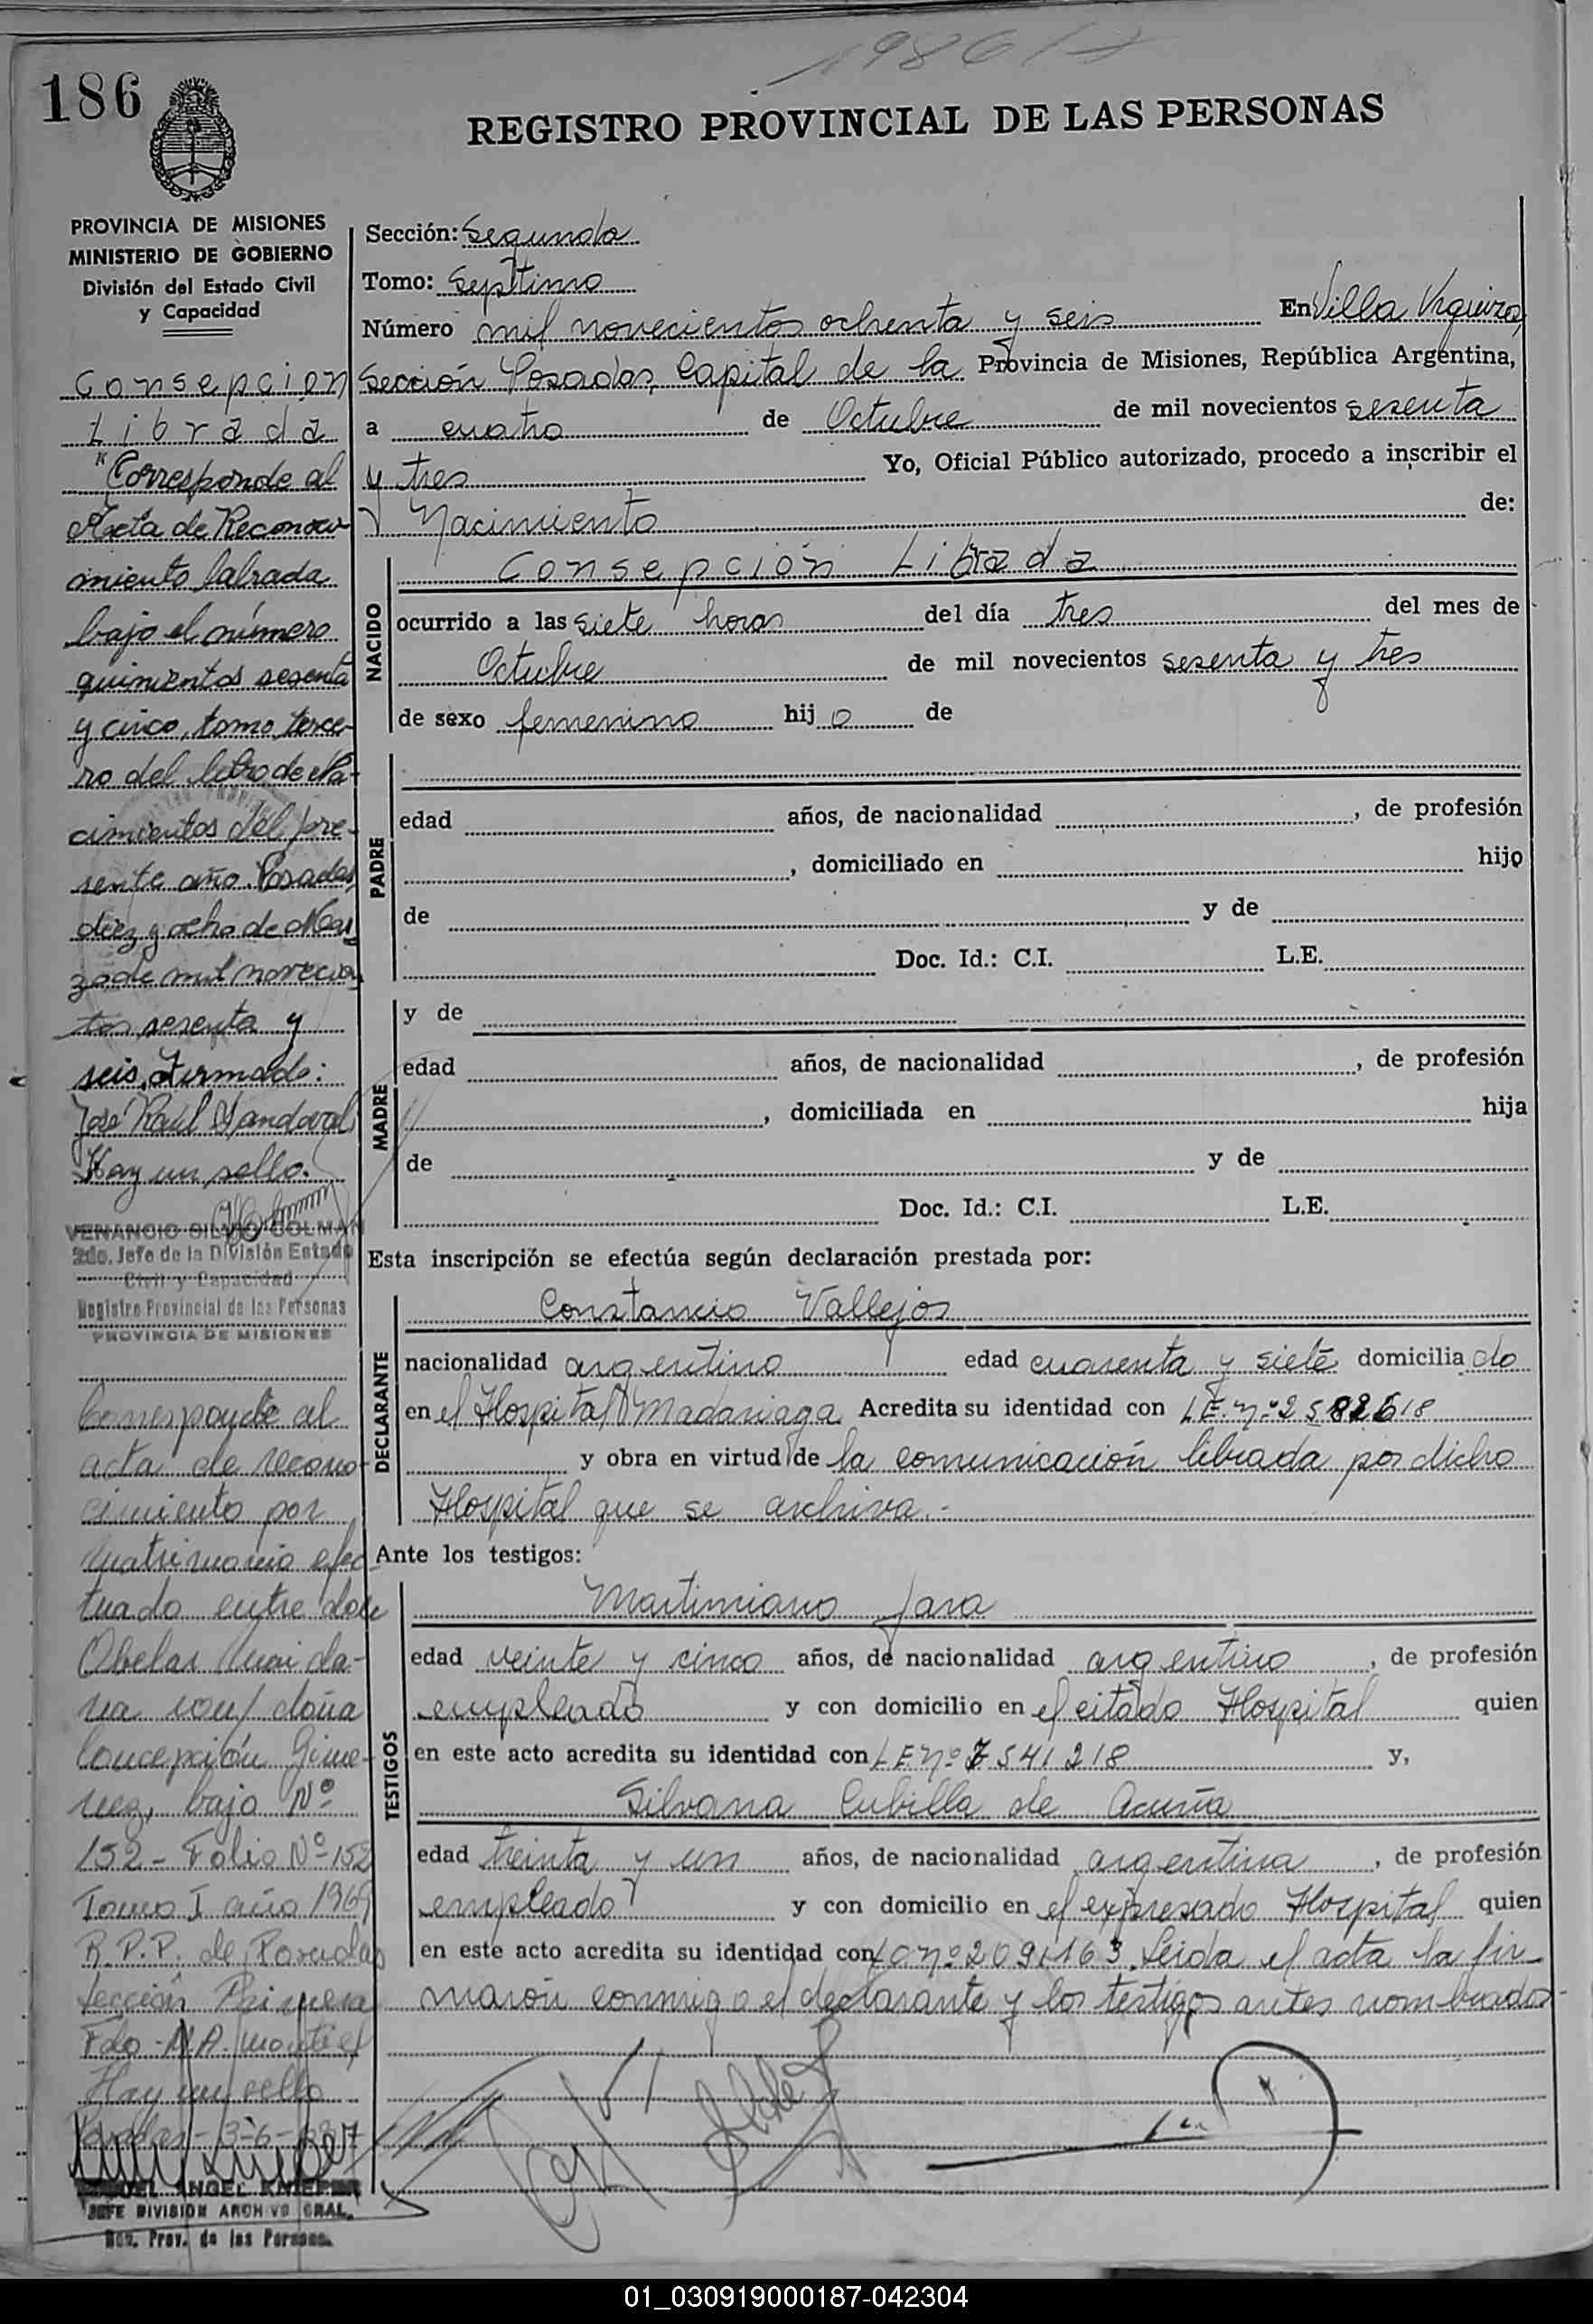 186
REGISTRO PROVINCIAL DE LAS PERSONAS
PROVINCIA DE MISIONES
MINISTERIO DE GOBIERNO
División del Estado Civil
y Capacidad
Consepcion
Librada
"Corresponde al
Acta de Reconoci
miento labrada
bajo el número
quinientos sesenta
y cinco, tomo terce-
ro del libro de Na-
cimientos del pre-
sente año. Posadas,
diez y ocho de Mar
zo de mil novecien
tos sesenta y
seis. Firmado:
José Raúl Sandoval
Hay un sello.
VENANCIO SILVIO COLMAN
2do. Jefe de la División Estado
Civil y Capacidad
Registro Provincial de las Personas
PROVINCIA DE MISIONES
Corresponde al
acta de recono-
cimiento por
matrimonio efec
tuado entre don
Obelar
con doña
Concepción Gime-
nez, bajo Nº
152 - Folio Nº 152
Tomo I año 1969
R.P.P. de Posadas
Sección Primera
Fdo - M.A. Montiel
Hay un sello
Posadas - 3-6-
ANGEL
JEFE DIVISION ARCHIVO GRAL.
Reg. Prov. de las Personas
Sección: Segunda
Tomo: Septimo
Número mil novecientos ochenta y seis En Villa Urquiza,
Sección Posadas, Capital de la Provincia de Misiones, República Argentina,
a cuatro de Octubre de mil novecientos sesenta
y tres Yo, Oficial Público autorizado, procedo a inscribir el
Nacimiento de:
NACIDO
Consepción Librada
ocurrido a las siete horas del día tres del mes de
Octubre de mil novecientos sesenta y tres
de sexo femenino hij o de
PADRE
edad años, de nacionalidad , de profesión
, domiciliado en hijo
de y de
Doc. Id.: C.I. L.E.
MADRE
y de
edad años, de nacionalidad , de profesión
, domiciliada en hija
de y de
Doc. Id.: C.I. L.E.
Esta inscripción se efectúa según declaración prestada por:
DECLARANTE
Constancio Vallejos
nacionalidad argentino edad cuarenta y siete domicilia do
en el Hospital Madariaga Acredita su identidad con L.E. nº 2582618
y obra en virtud de la comunicación librada por dicho
Hospital que se archiva.-
Ante los testigos:
TESTIGOS
Martimiano Jara
edad veinte y cinco años, de nacionalidad argentino , de profesión
empleado y con domicilio en el citado Hospital quien
en este acto acredita su identidad con LE nº 7541218 y,
Silvana Cubilla de Acuña
edad treinta y un años, de nacionalidad argentina , de profesión
empleado y con domicilio en el expresado Hospital quien
en este acto acredita su identidad con LC nº 2091163. Leida el acta la fir-
maron conmigo el declarante y los testigos antes nombrados-
01_030919000187-042304